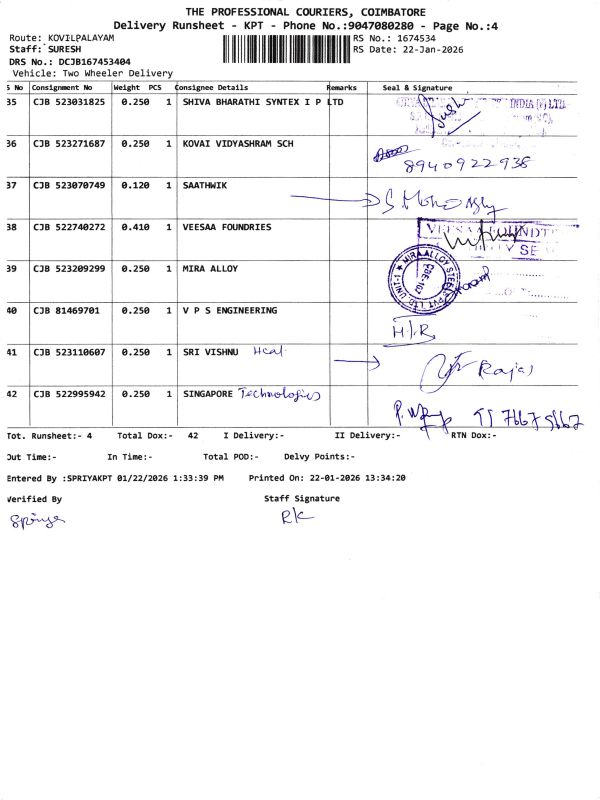 THE PROFESSIONAL COURIERS, COIMBATORE
Delivery Runsheet - KPT - Phone No.:9047080280 - Page No.:4
Route: KOVILPALAYAM RS No.: 1674534
Staff: SURESH RS Date: 22-Jan-2026
DRS No.: DCJB167453404
Vehicle: Two Wheeler Delivery
S No Consignment No Weight PCS Consignee Details Remarks Seal & Signature
35 CJB 523031825 0.250 1 SHIVA BHARATHI SYNTEX I P LTD INDIA (P) LTD
36 CJB 523271687 0.250 1 KOVAI VIDYASHRAM SCH
8940922938
37 CJB 523070749 0.120 1 SAATHWIK
38 CJB 522740272 0.410 1 VEESAA FOUNDRIES
39 CJB 523209299 0.250 1 MIRA ALLOY
MIRA ALLOY STEELS PVT LTD, UNIT-1
CBE-107
40 CJB 81469701 0.250 1 V P S ENGINEERING
H.R
41 CJB 523110607 0.250 1 SRI VISHNU Heat Raja
42 CJB 522995942 0.250 1 SINGAPORE Technologies
Tot. Runsheet:- 4 Total Dox:- 42 I Delivery:- II Delivery:- RTN Dox:-
Out Time:- In Time:- Total POD:- Delvy Points:-
Entered By :SPRIYAKPT 01/22/2026 1:33:39 PM Printed On: 22-01-2026 13:34:20
Verified By Staff Signature
RK